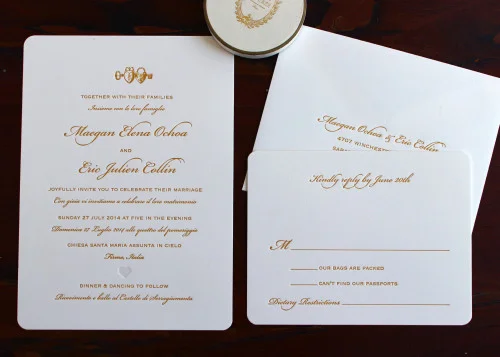 TOGETHER WITH THEIR FAMILIES
Insieme con le loro famiglie
Maegan Elena Ochoa
AND
Eric Julien Collin
JOYFULLY INVITE YOU TO CELEBRATE THEIR MARRIAGE
Con gioia vi invitiamo a celebrare il loro matrimonio
SUNDAY 27 JULY 2014 AT FIVE IN THE EVENING
Domenica 27 Luglio 2014 alle quattro del pomeriggio
CHIESA SANTA MARIA ASSUNTA IN CIELO
Firenze, Italia
DINNER & DANCING TO FOLLOW
Ricevimento e ballo al Castello di
Maegan Ochoa & Eric Collin
4707 WINCHESTER
Kindly reply by June 20th
M
OUR BAGS ARE PACKED
CAN'T FIND OUR PASSPORTS
Dietary Restrictions